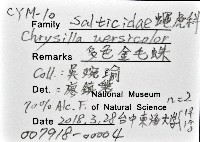 CYM-10
Family Salticidae 蠅虎科
Chrysilla versicolor
Remarks 多色金毛蛛
Coll.: 吳
Det.:
National Museum
70% Alc. F. of Natural Science
n=2
Date 2018.3.28 台中東海大
007918-00004